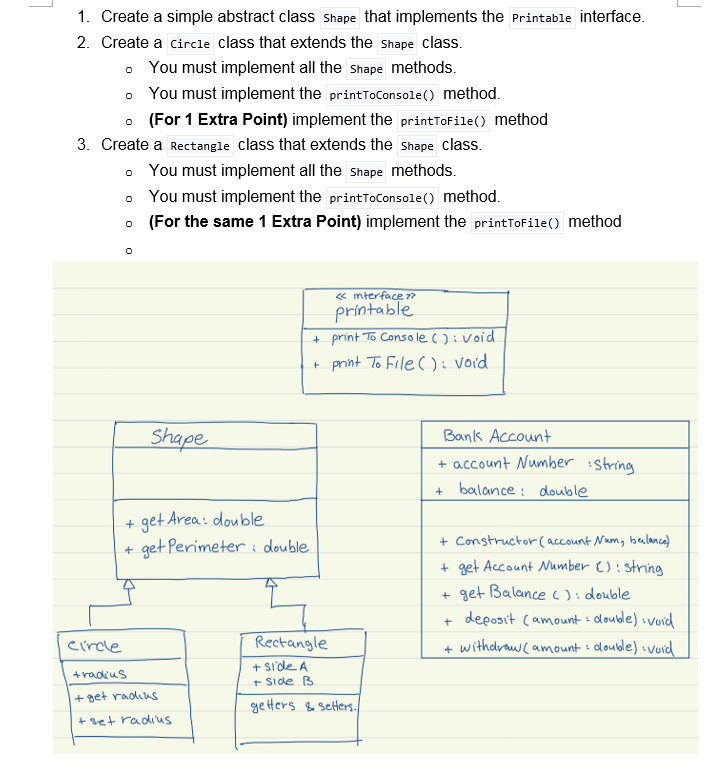 1. Create a simple abstract class Shape that implements the Printable interface.
2. Create a Circle class that extends the Shape class.
o You must implement all the Shape methods.
o You must implement the printToConsole() method.
o (For 1 Extra Point) implement the printToFile() method
3. Create a Rectangle class that extends the Shape class.
o You must implement all the Shape methods.
o You must implement the printToConsole() method.
o (For the same 1 Extra Point) implement the printToFile() method
o
<< interface >>
printable
+ print To Console ( ) : void
+ print To File ( ) : void
Shape
+ get Area : double
+ get Perimeter : double
Bank Account
+ account Number : String
+ balance : double
+ Constructor ( account Num, balance)
+ get Account Number ( ) : String
+ get Balance ( ) : double
+ deposit ( amount : double) : void
+ withdraw ( amount : double) : void
Circle
+ radius
+ get radius
+ set radius
Rectangle
+ side A
+ side B
getters & setters.